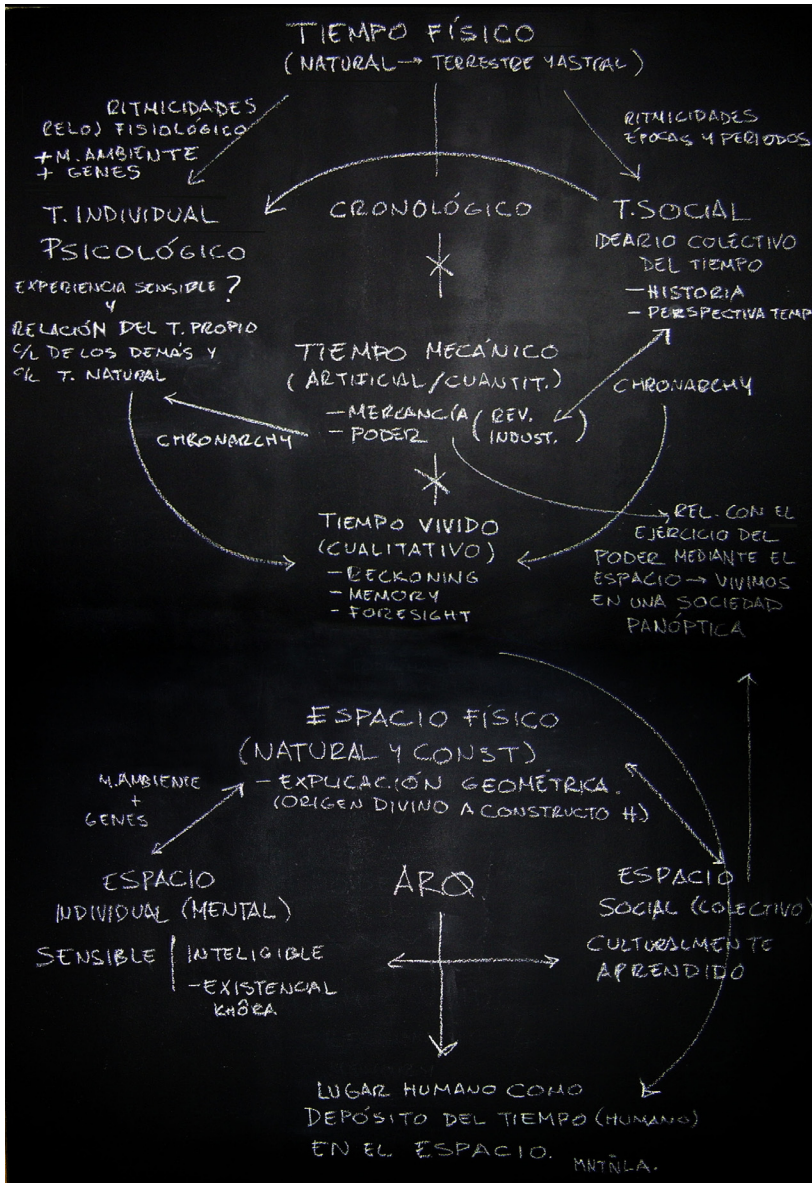 TIEMPO FÍSICO
(NATURAL → TERRESTRE Y ASTRAL)
RITMICIDADES
RELOJ FISIOLÓGICO
+ M. AMBIENTE
+ GENES
RITMICIDADES
ÉPOCAS Y PERIODOS
T. INDIVIDUAL
PSICOLÓGICO
EXPERIENCIA SENSIBLE ?
Y
RELACIÓN DEL T. PROPIO
C/L DE LOS DEMÁS Y
C/L T. NATURAL
CRONOLÓGICO
T. SOCIAL
IDEARIO COLECTIVO
DEL TIEMPO
- HISTORIA
- PERSPECTIVA TEMP
TIEMPO MECÁNICO
(ARTIFICIAL/CUANTIT.)
- MERCANCÍA
- PODER
(REV.
INDUST.)
CHRONARCHY
CHRONARCHY
TIEMPO VIVIDO
(CUALITATIVO)
- RECKONING
- MEMORY
- FORESIGHT
REL. CON EL
EJERCICIO DEL
PODER MEDIANTE EL
ESPACIO → VIVIMOS
EN UNA SOCIEDAD
PANÓPTICA
ESPACIO FÍSICO
(NATURAL Y CONST)
- EXPLICACIÓN GEOMÉTRICA.
(ORIGEN DIVINO A CONSTRUCTO H.)
M. AMBIENTE
+
GENES
ESPACIO
INDIVIDUAL (MENTAL)
SENSIBLE | INTELIGIBLE
- EXISTENCIAL
KHÔRA
ARQ.
ESPACIO
SOCIAL (COLECTIVO)
CULTURALMENTE
APRENDIDO
LUGAR HUMANO COMO
DEPÓSITO DEL TIEMPO (HUMANO)
EN EL ESPACIO.
MNTÑLA.